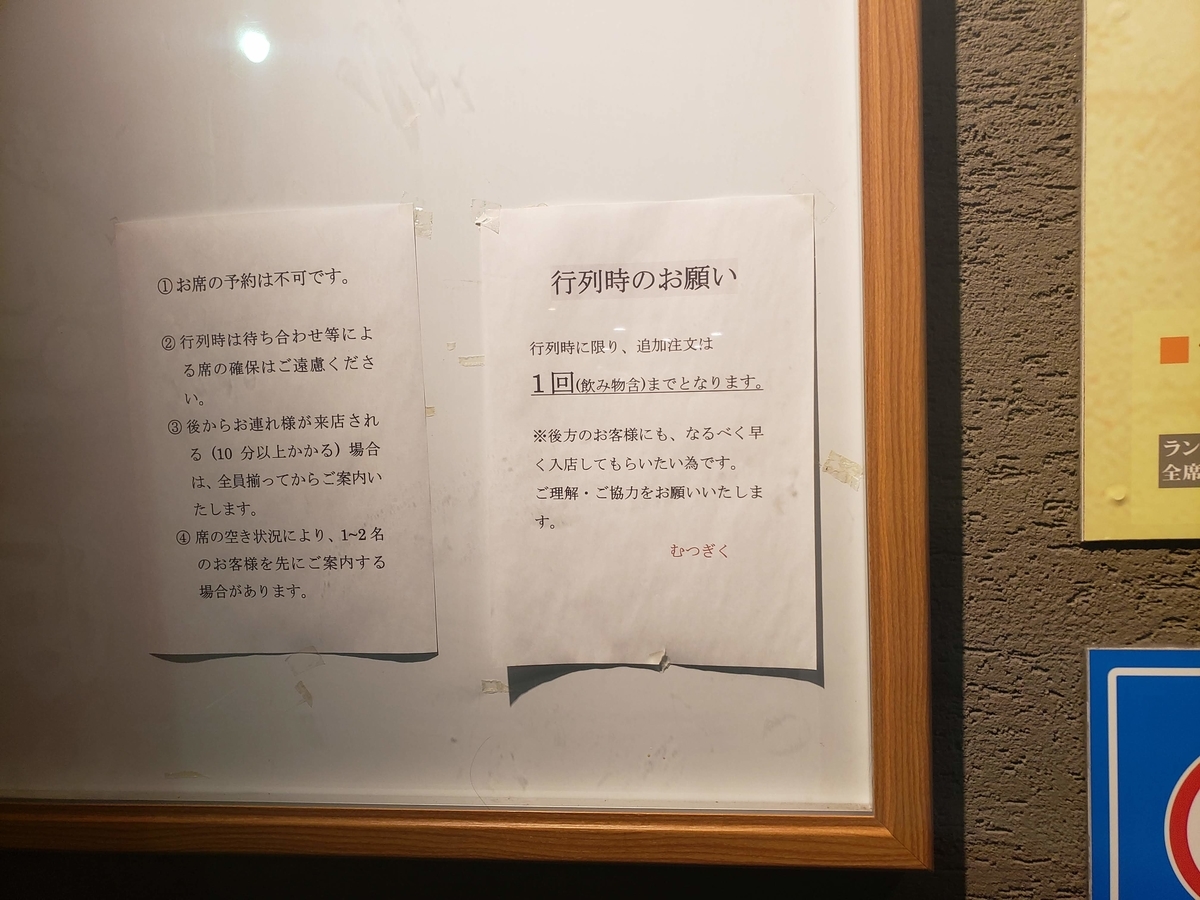 ①お席の予約は不可です。
②行列時は待ち合わせ等によ
る席の確保はご遠慮くださ
い。
③後からお連れ様が来店され
る (10 分以上かかる) 場合
は、全員揃ってからご案内い
たします。
④席の空き状況により、1~2 名
のお客様を先にご案内する
場合があります。
行列時のお願い
行列時に限り、追加注文は
1回(飲み物含)までとなります。
※後方のお客様にも、なるべく早
く入店してもらいたい為です。
ご理解・ご協力をお願いいたしま
す。
むつぎく
ラン
全席